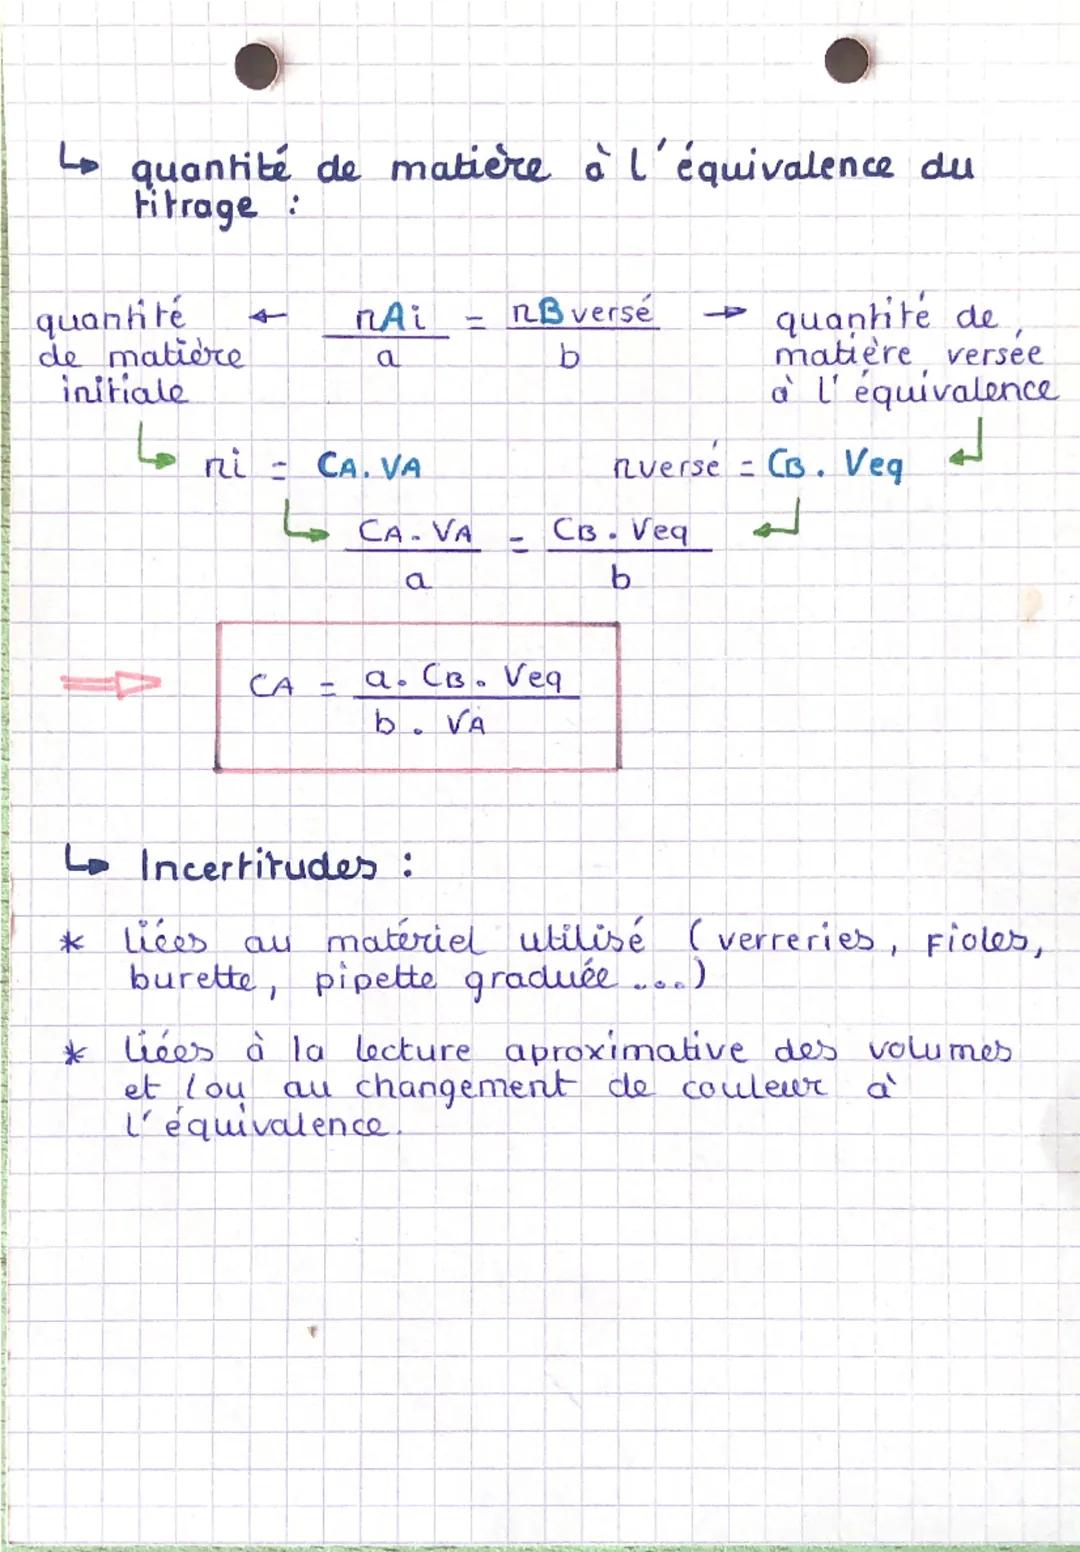 ↳ quantité de matière à l'équivalence du
titrage :
quantité ← nAi/a = nBversé/b → quantité de
de matière matière versée
initiale à l'équivalence
↳ ni = CA.VA nversé = CB.Veq ↲
↳ CA.VA/a = CB.Veq/b ↲
⇒ CA = a.CB.Veq/b.VA
↳ Incertitudes :
* liées au matériel utilisé (verreries, Fioles,
burette, pipette graduée ....)
* liées à la lecture aproximative des volumes
et /ou au changement de couleur à
l'équivalence.